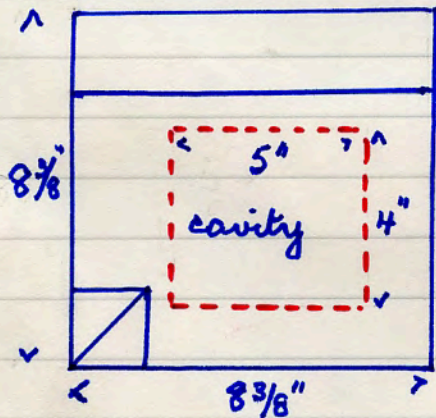 5"
8 3/8"
cavity
4"
8 3/8"